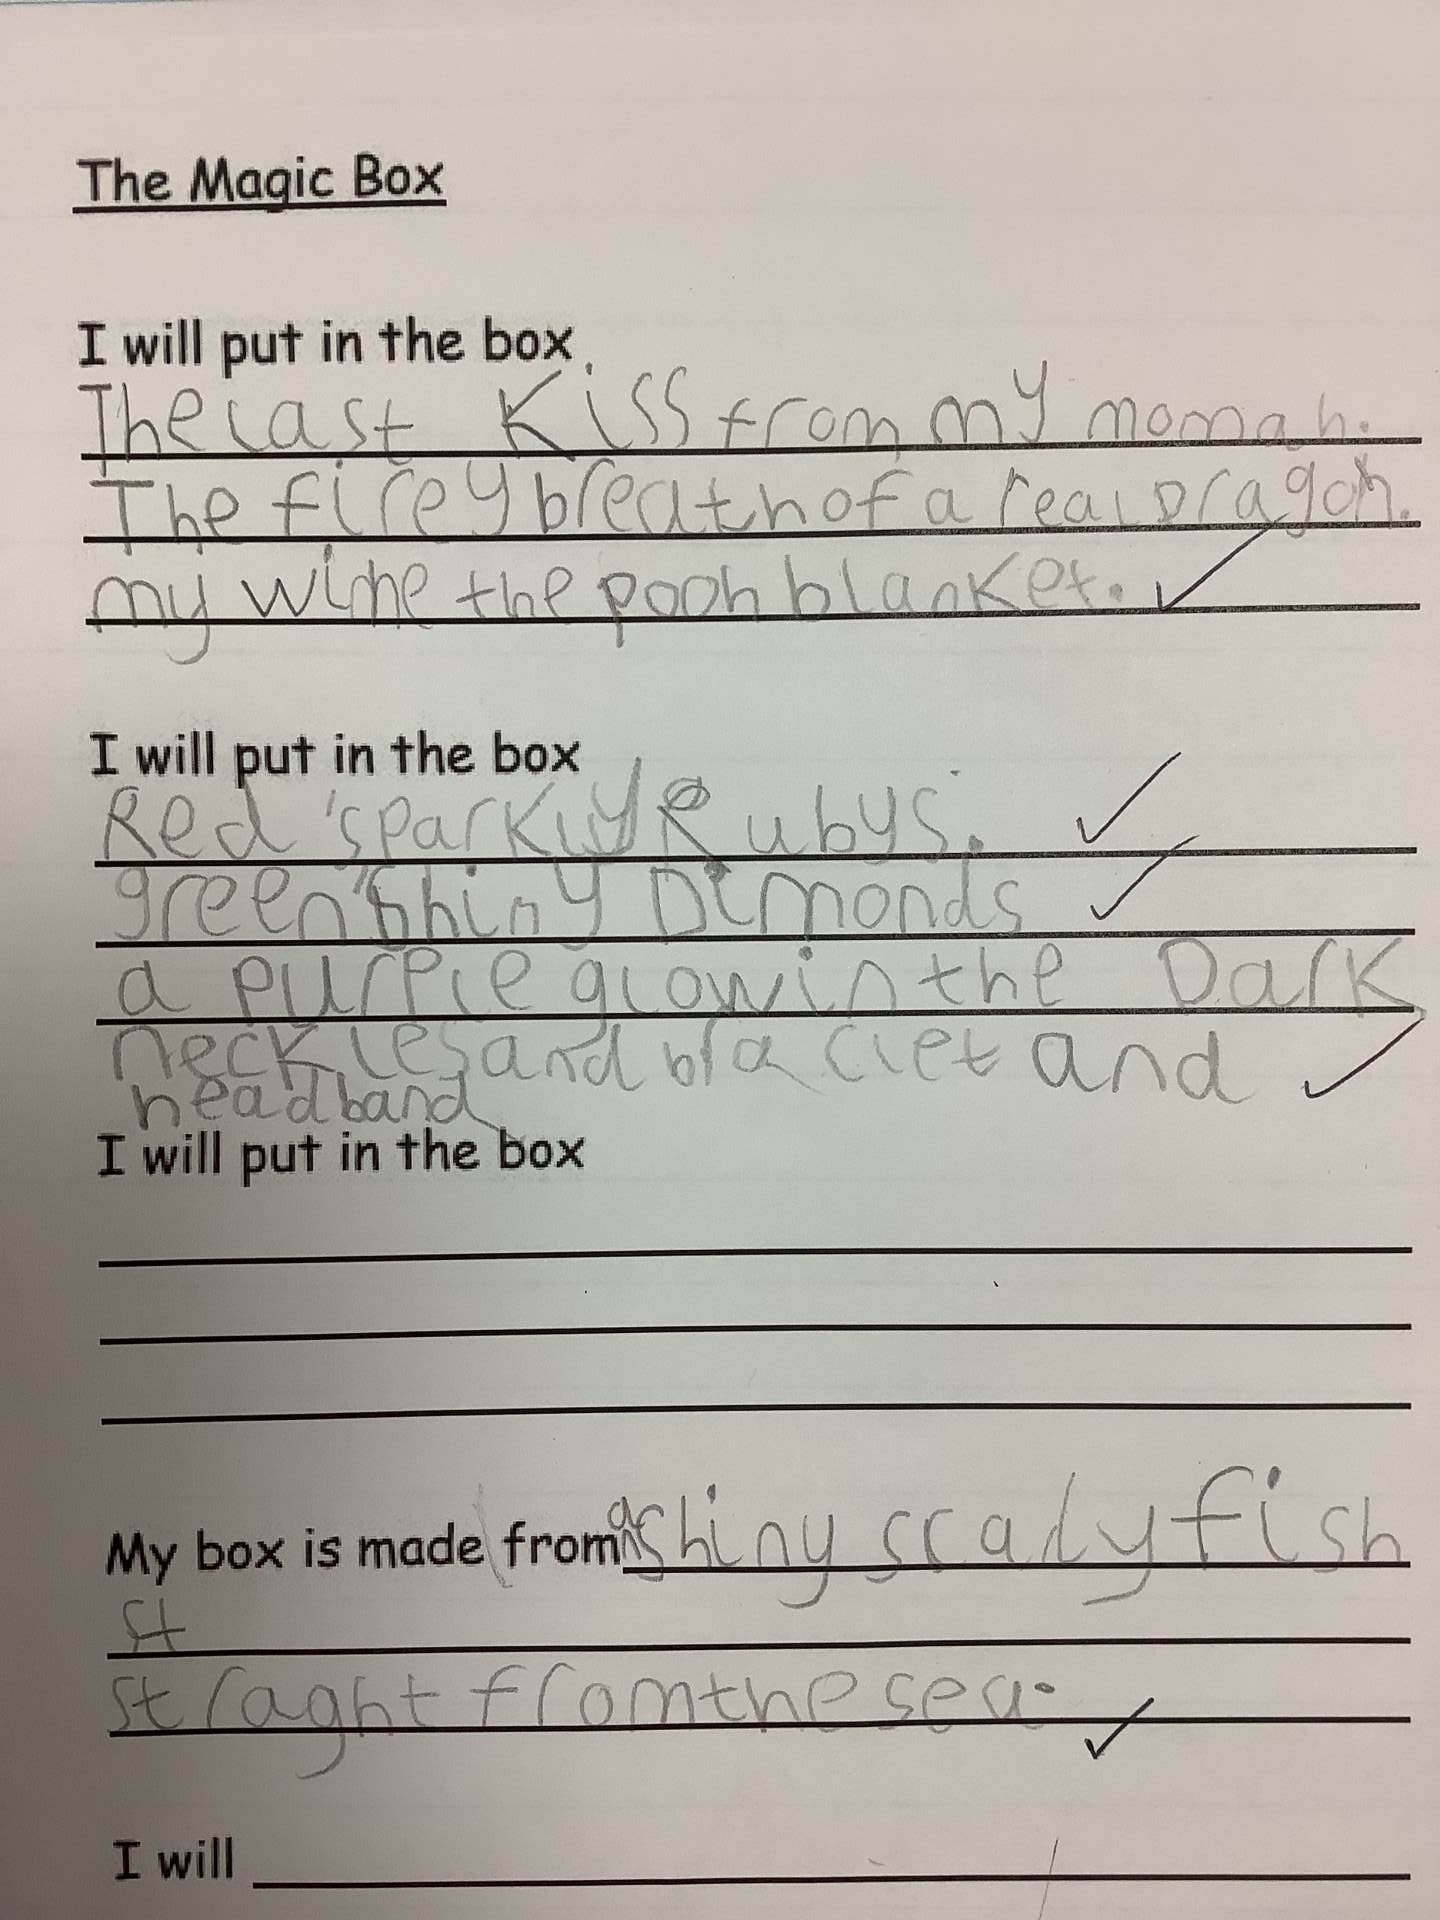 The Magic Box
I will put in the box
The last Kiss from my momah.
The firey breath of a real Dragon.
my wine the pooh blanket.
I will put in the box
Red sparkly Rubys.
green shiny Dimonds
a purple glow in the Dark
neckles and braclet and
headband
I will put in the box
My box is made from a shiny scaly fish
st
straght from the sea.
I will